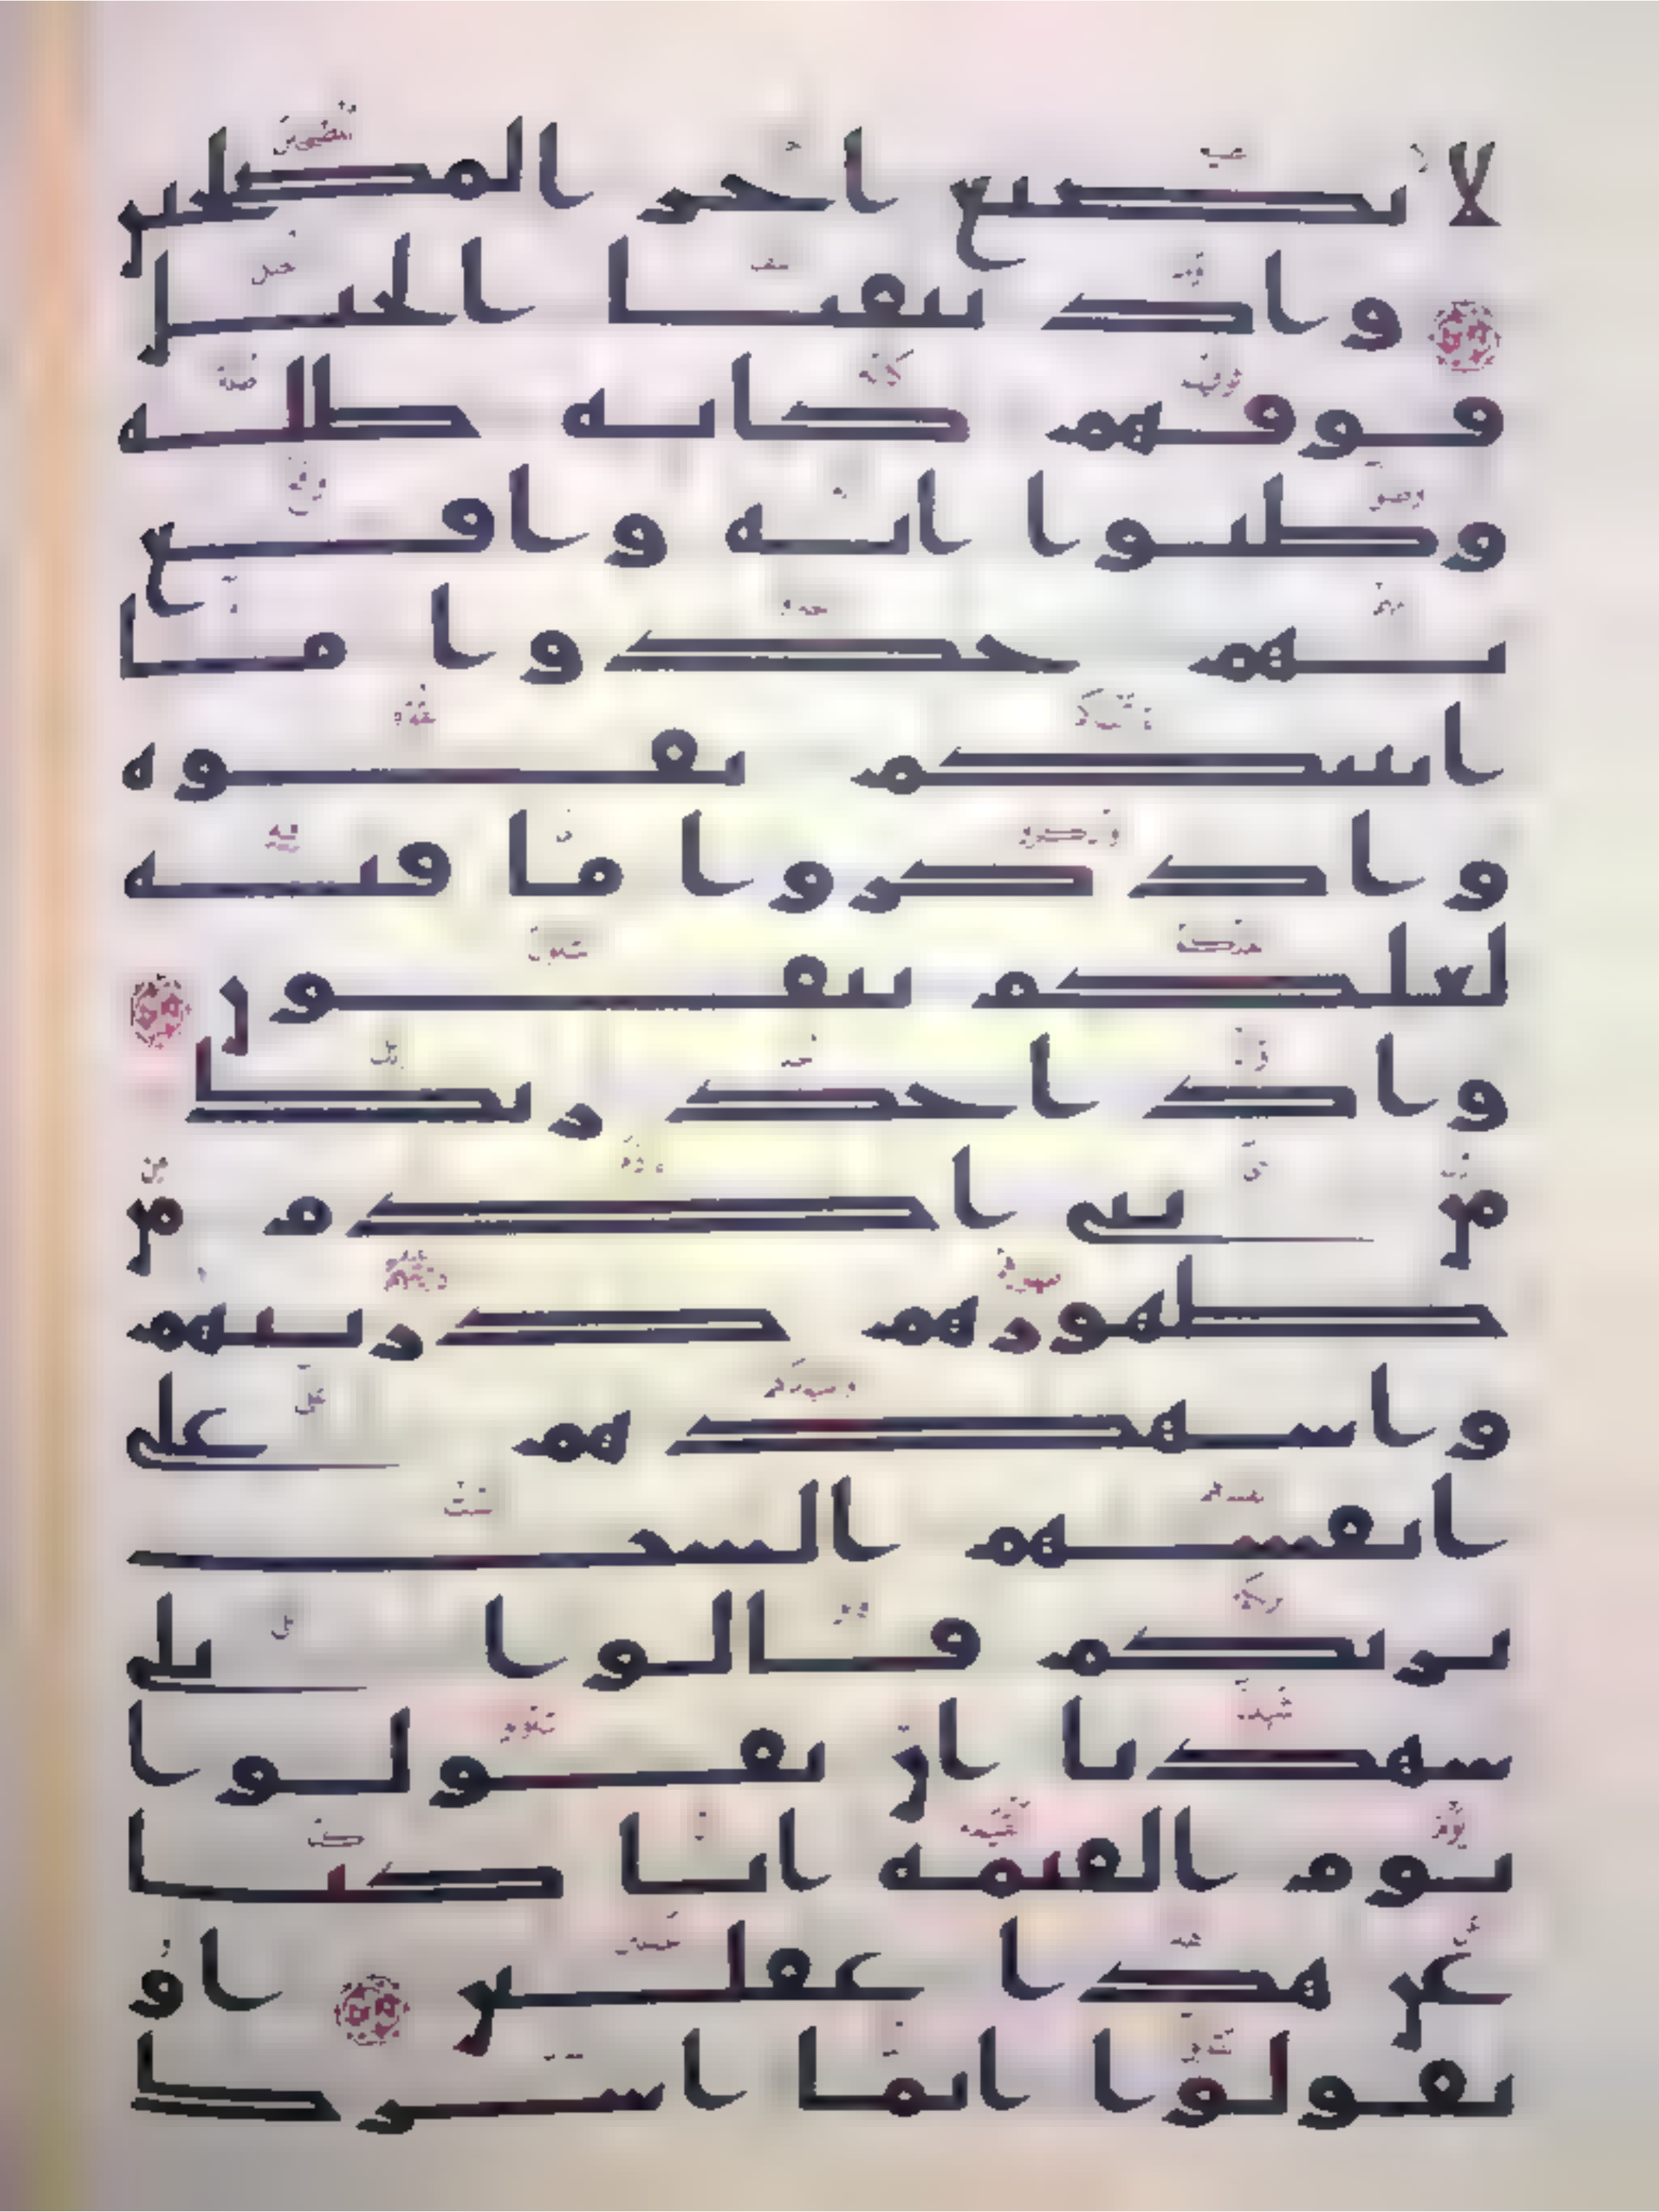 لا نضيع اجر المصلحين
واذ نتقنا الجبل
فوقهم كانه ظله
وظنوا انه واقع
بهم خذوا ما
اتينكم بقوه
واذكروا ما فيه
لعلكم تتقون
واذ اخذ ربك
من بني ادم من
ظهورهم ذريتهم
واشهدهم على
انفسهم الست
بربكم قالوا بلى
شهدنا ان تقولوا
يوم القيمه انا كنا
عن هذا غفلين او
تقولوا انما اشرك